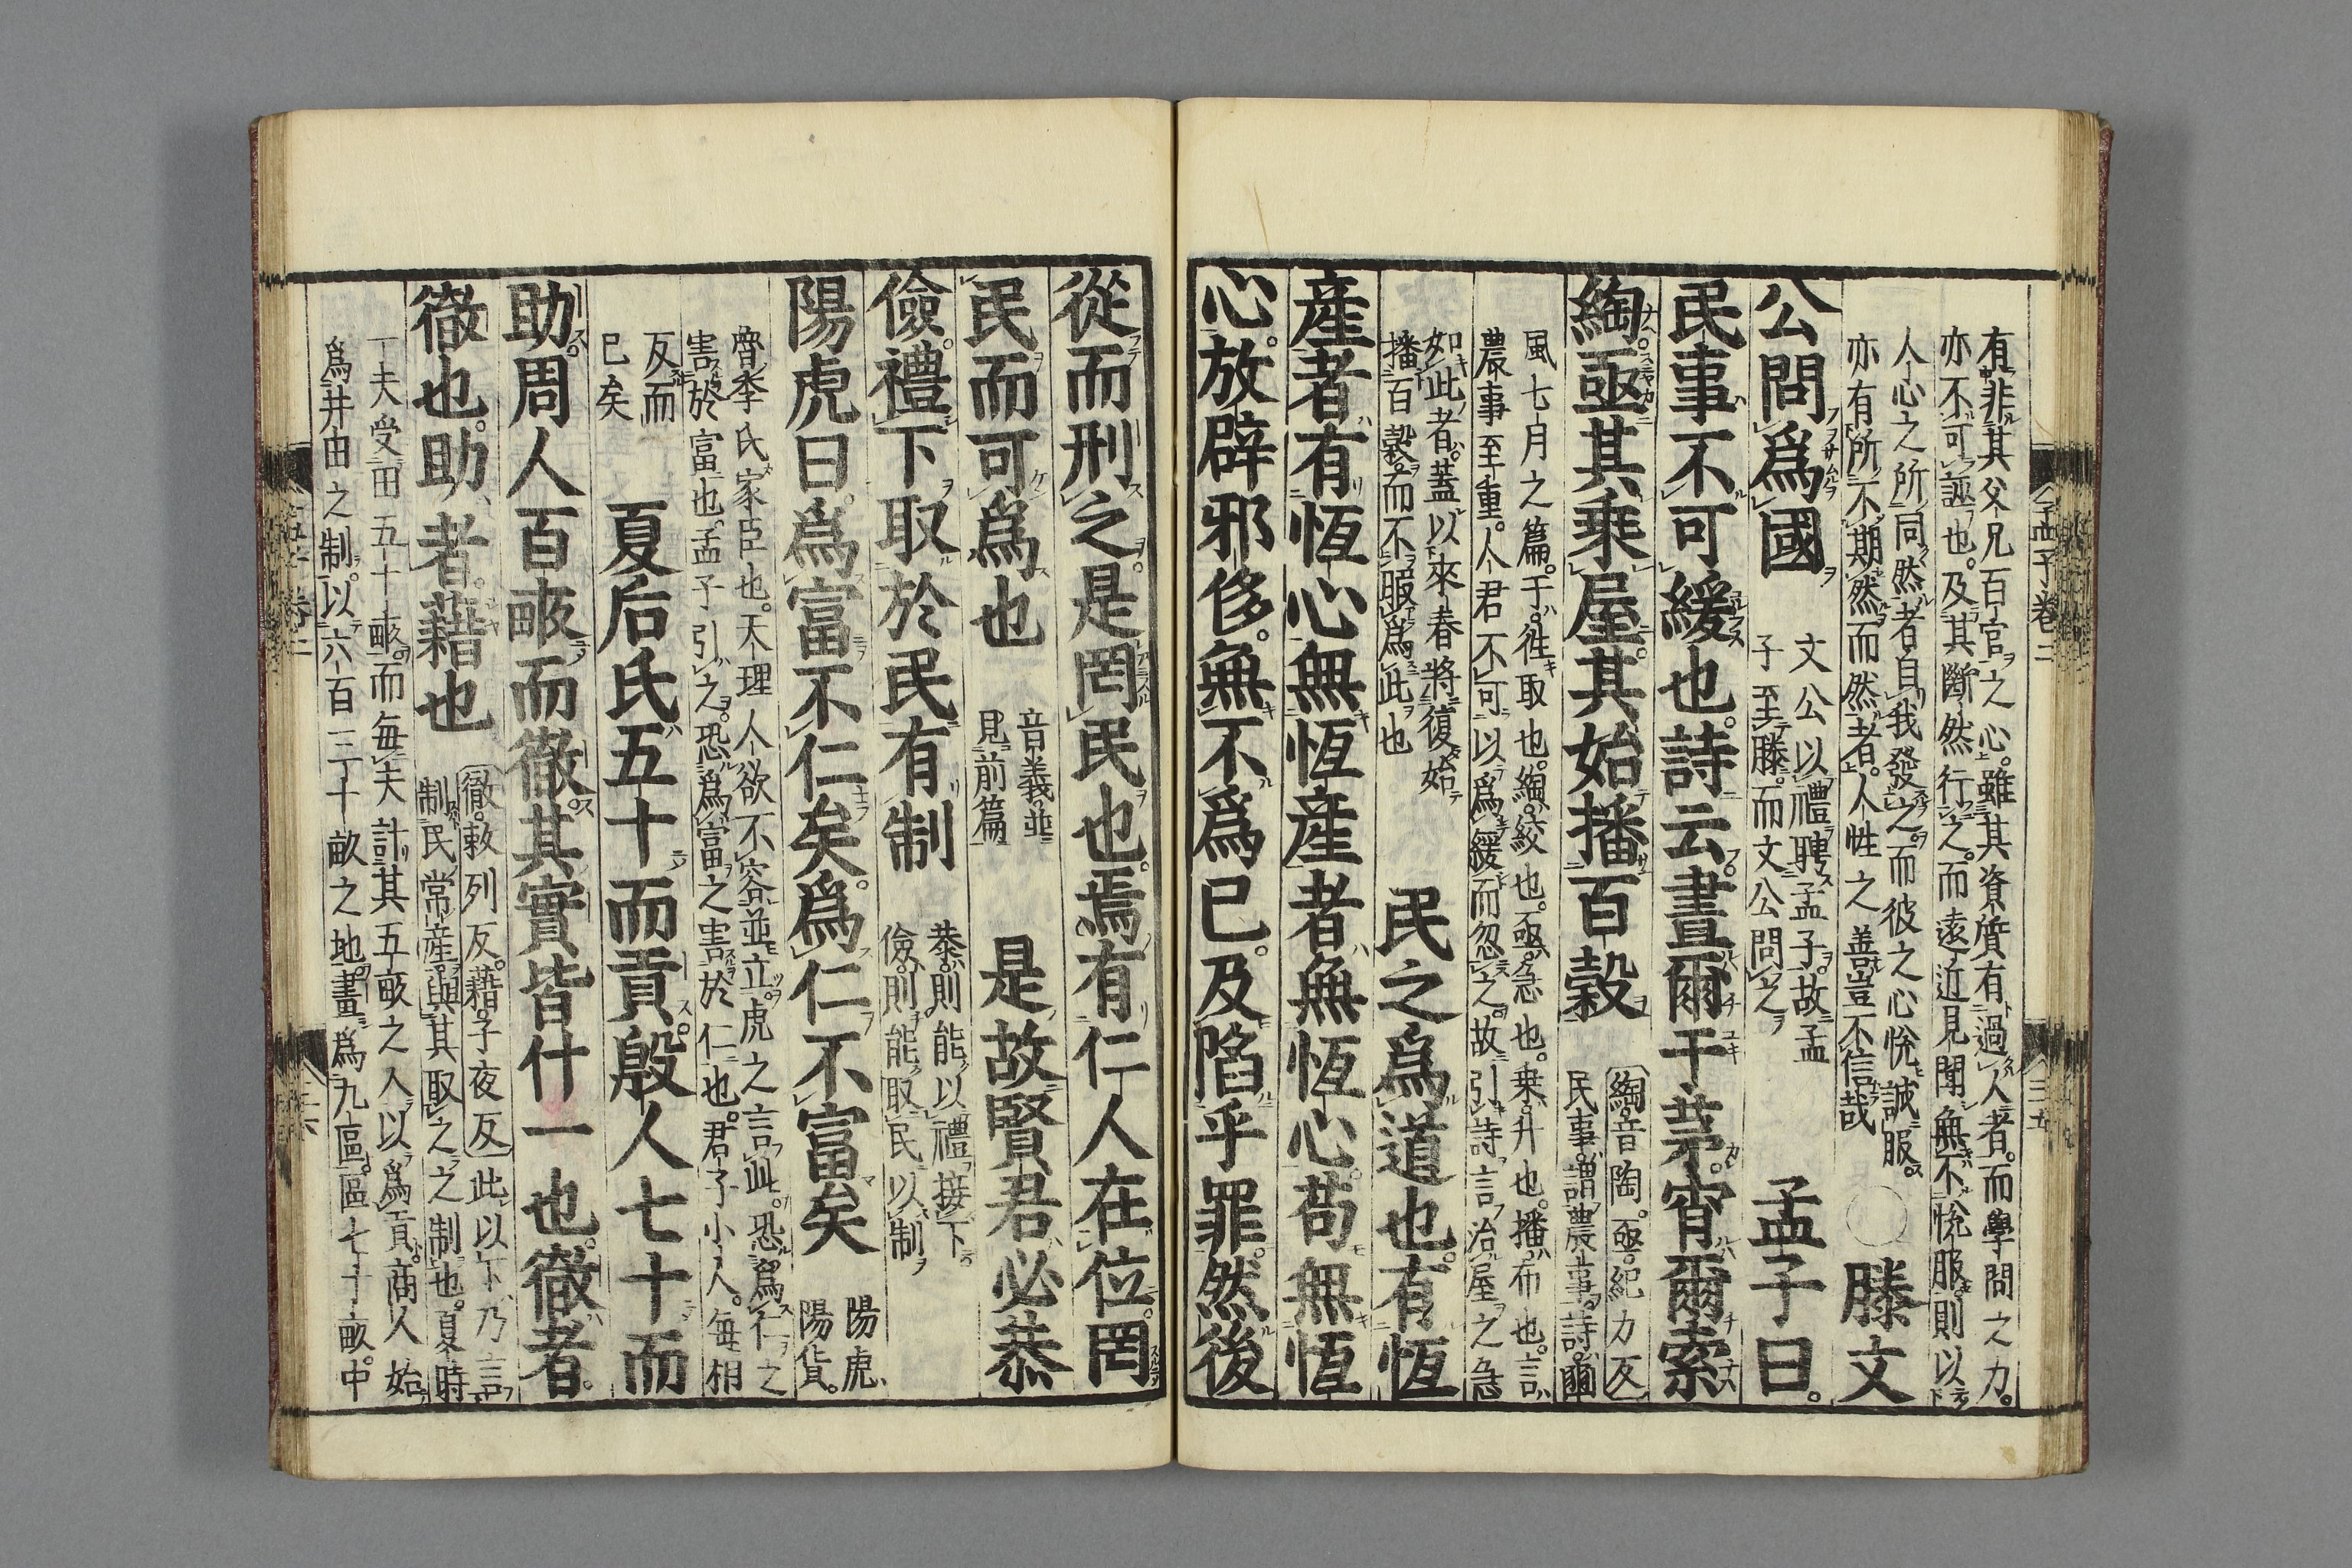 孟子卷二
有非其父兄百官之心雖其資質有過人者而學問之力
亦不可誣也及其斷然行之而遠近見聞無不悅服則以
人心之所同然者自我發之而彼之心悅誠服
亦有所不期然而然者人性之善豈不信哉
○滕文
公問爲國
文公以禮聘孟子故孟
子至滕而文公問之
孟子曰
民事不可緩也詩云晝爾于茅宵爾索
綯亟其乘屋其始播百穀
綯音陶亟紀力反
民事謂農事詩豳
風七月之篇于徃取也綯絞也亟急也乗升也播布也言
農事至重人君不可以爲緩而忽之故引詩言治屋之急
如此者蓋以來春將復始
播百穀而不暇爲此也
民之爲道也有恆
產者有恆心無恆產者無恆心苟無恆
心放辟邪侈無不爲已及陷乎罪然後
從而刑之是罔民也焉有仁人在位罔
民而可爲也
音義並
見前篇
是故賢君必恭
儉禮下取於民有制
恭則能以禮接下
儉則能取民以制
陽虎曰爲富不仁矣爲仁不富矣
陽虎
陽貨
魯季氏家臣也天理人欲不容並立虎之言此恐爲仁之
害於富也孟子引之恐爲富之害於仁也君子小人每相
反而
已矣
夏后氏五十而貢殷人七十而
助周人百畞而徹其實皆什一也徹者
徹也助者藉也
徹敕列反藉子夜反此以下乃言
制民常產與其取之之制也夏時
一夫受田五十畞而毎夫計其五畝之入以爲貢商人始
爲井田之制以六百三十畝之地畫爲九區區七十畝中